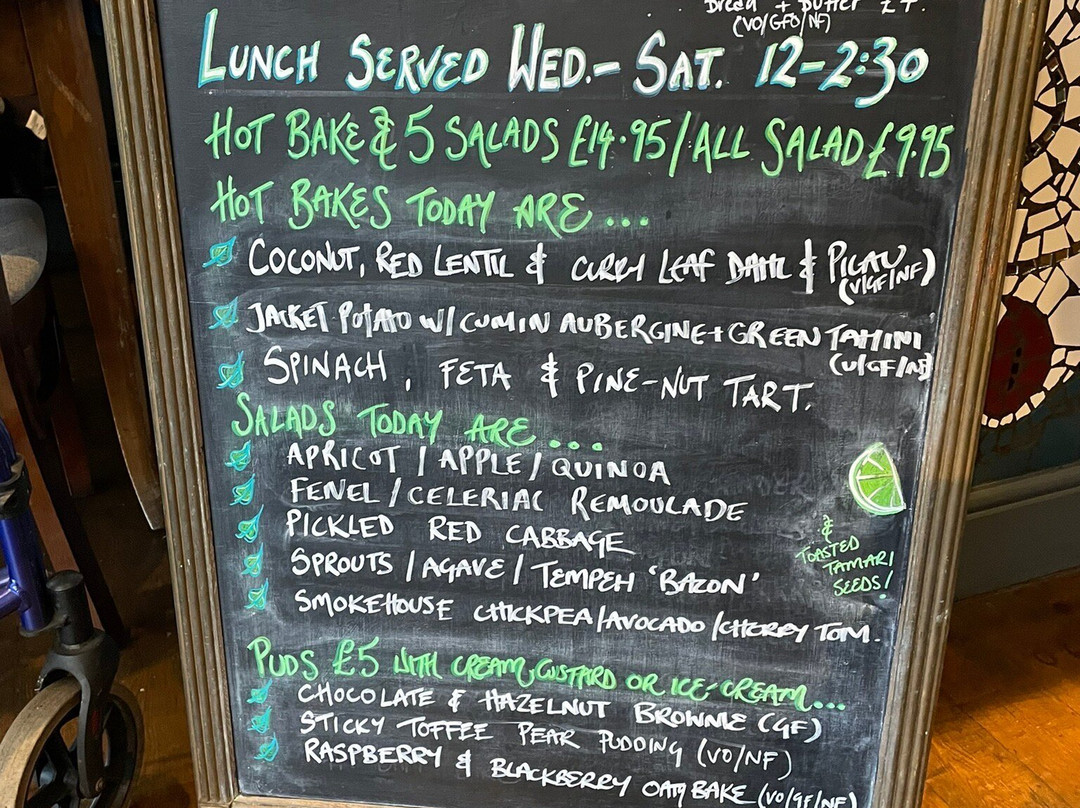 Bread + Butter £4.
(VO/GFO/NF)
LUNCH SERVED WED.- SAT. 12-2:30
HOT BAKE & 5 SALADS £14.95/ALL SALAD £9.95
HOT BAKES TODAY ARE...
COCONUT, RED LENTIL & CURRY LEAF DAHL & PILAU
(V/GF/NF)
JACKET POTATO W/CUMIN AUBERGINE+GREEN TAHINI
(V/GF/NF)
SPINACH, FETA & PINE-NUT TART.
SALADS TODAY ARE...
APRICOT / APPLE / QUINOA
FENEL / CELERIAC REMOULADE
PICKLED RED CABBAGE
SPROUTS / AGAVE / TEMPEH 'BACON'
SMOKEHOUSE CHICKPEA/AVOCADO/CHERRY TOM.
& TOASTED
TAMARI
SEEDS!
PUDS £5 WITH CREAM, CUSTARD OR ICE-CREAM...
CHOCOLATE & HAZELNUT BROWNIE (GF)
STICKY TOFFEE PEAR PUDDING (VO/NF)
RASPBERRY & BLACKBERRY OATY BAKE (VO/GF/NF)